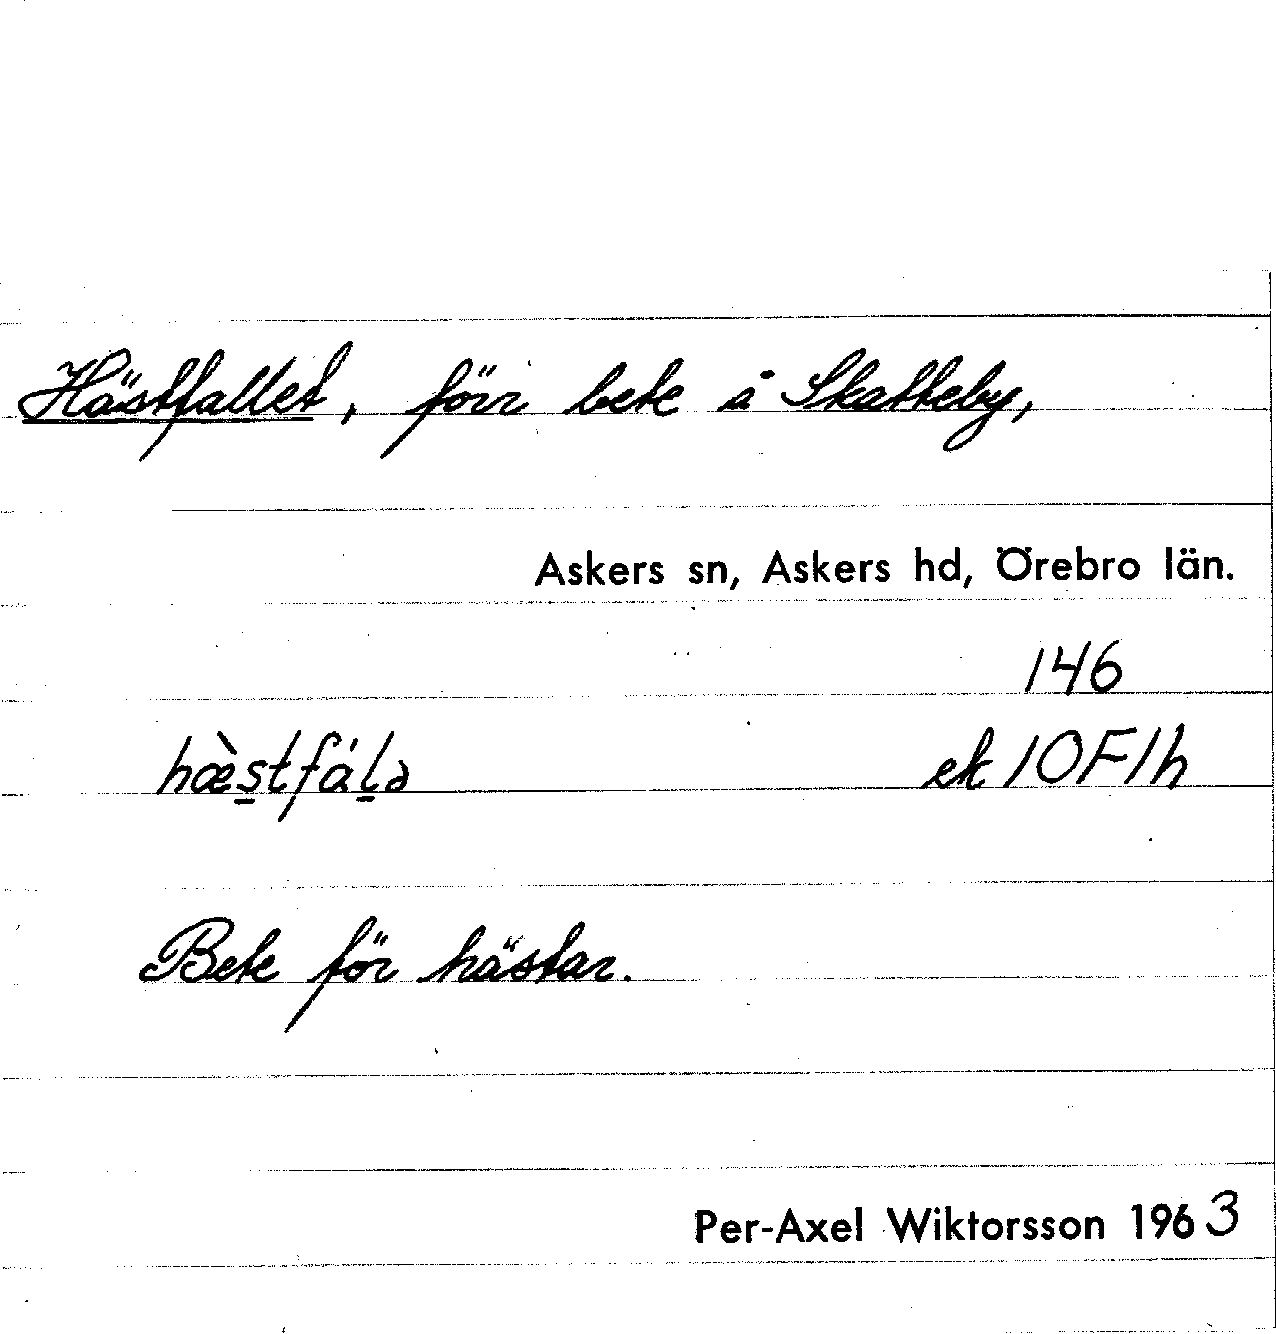 Hästfallet, förr bete å Skatteby,
Askers sn, Askers hd, Örebro län.
146
hæ̀s̲tfál̲ə ek 10F1h
Bete för hästar.
Per-Axel Wiktorsson 1963